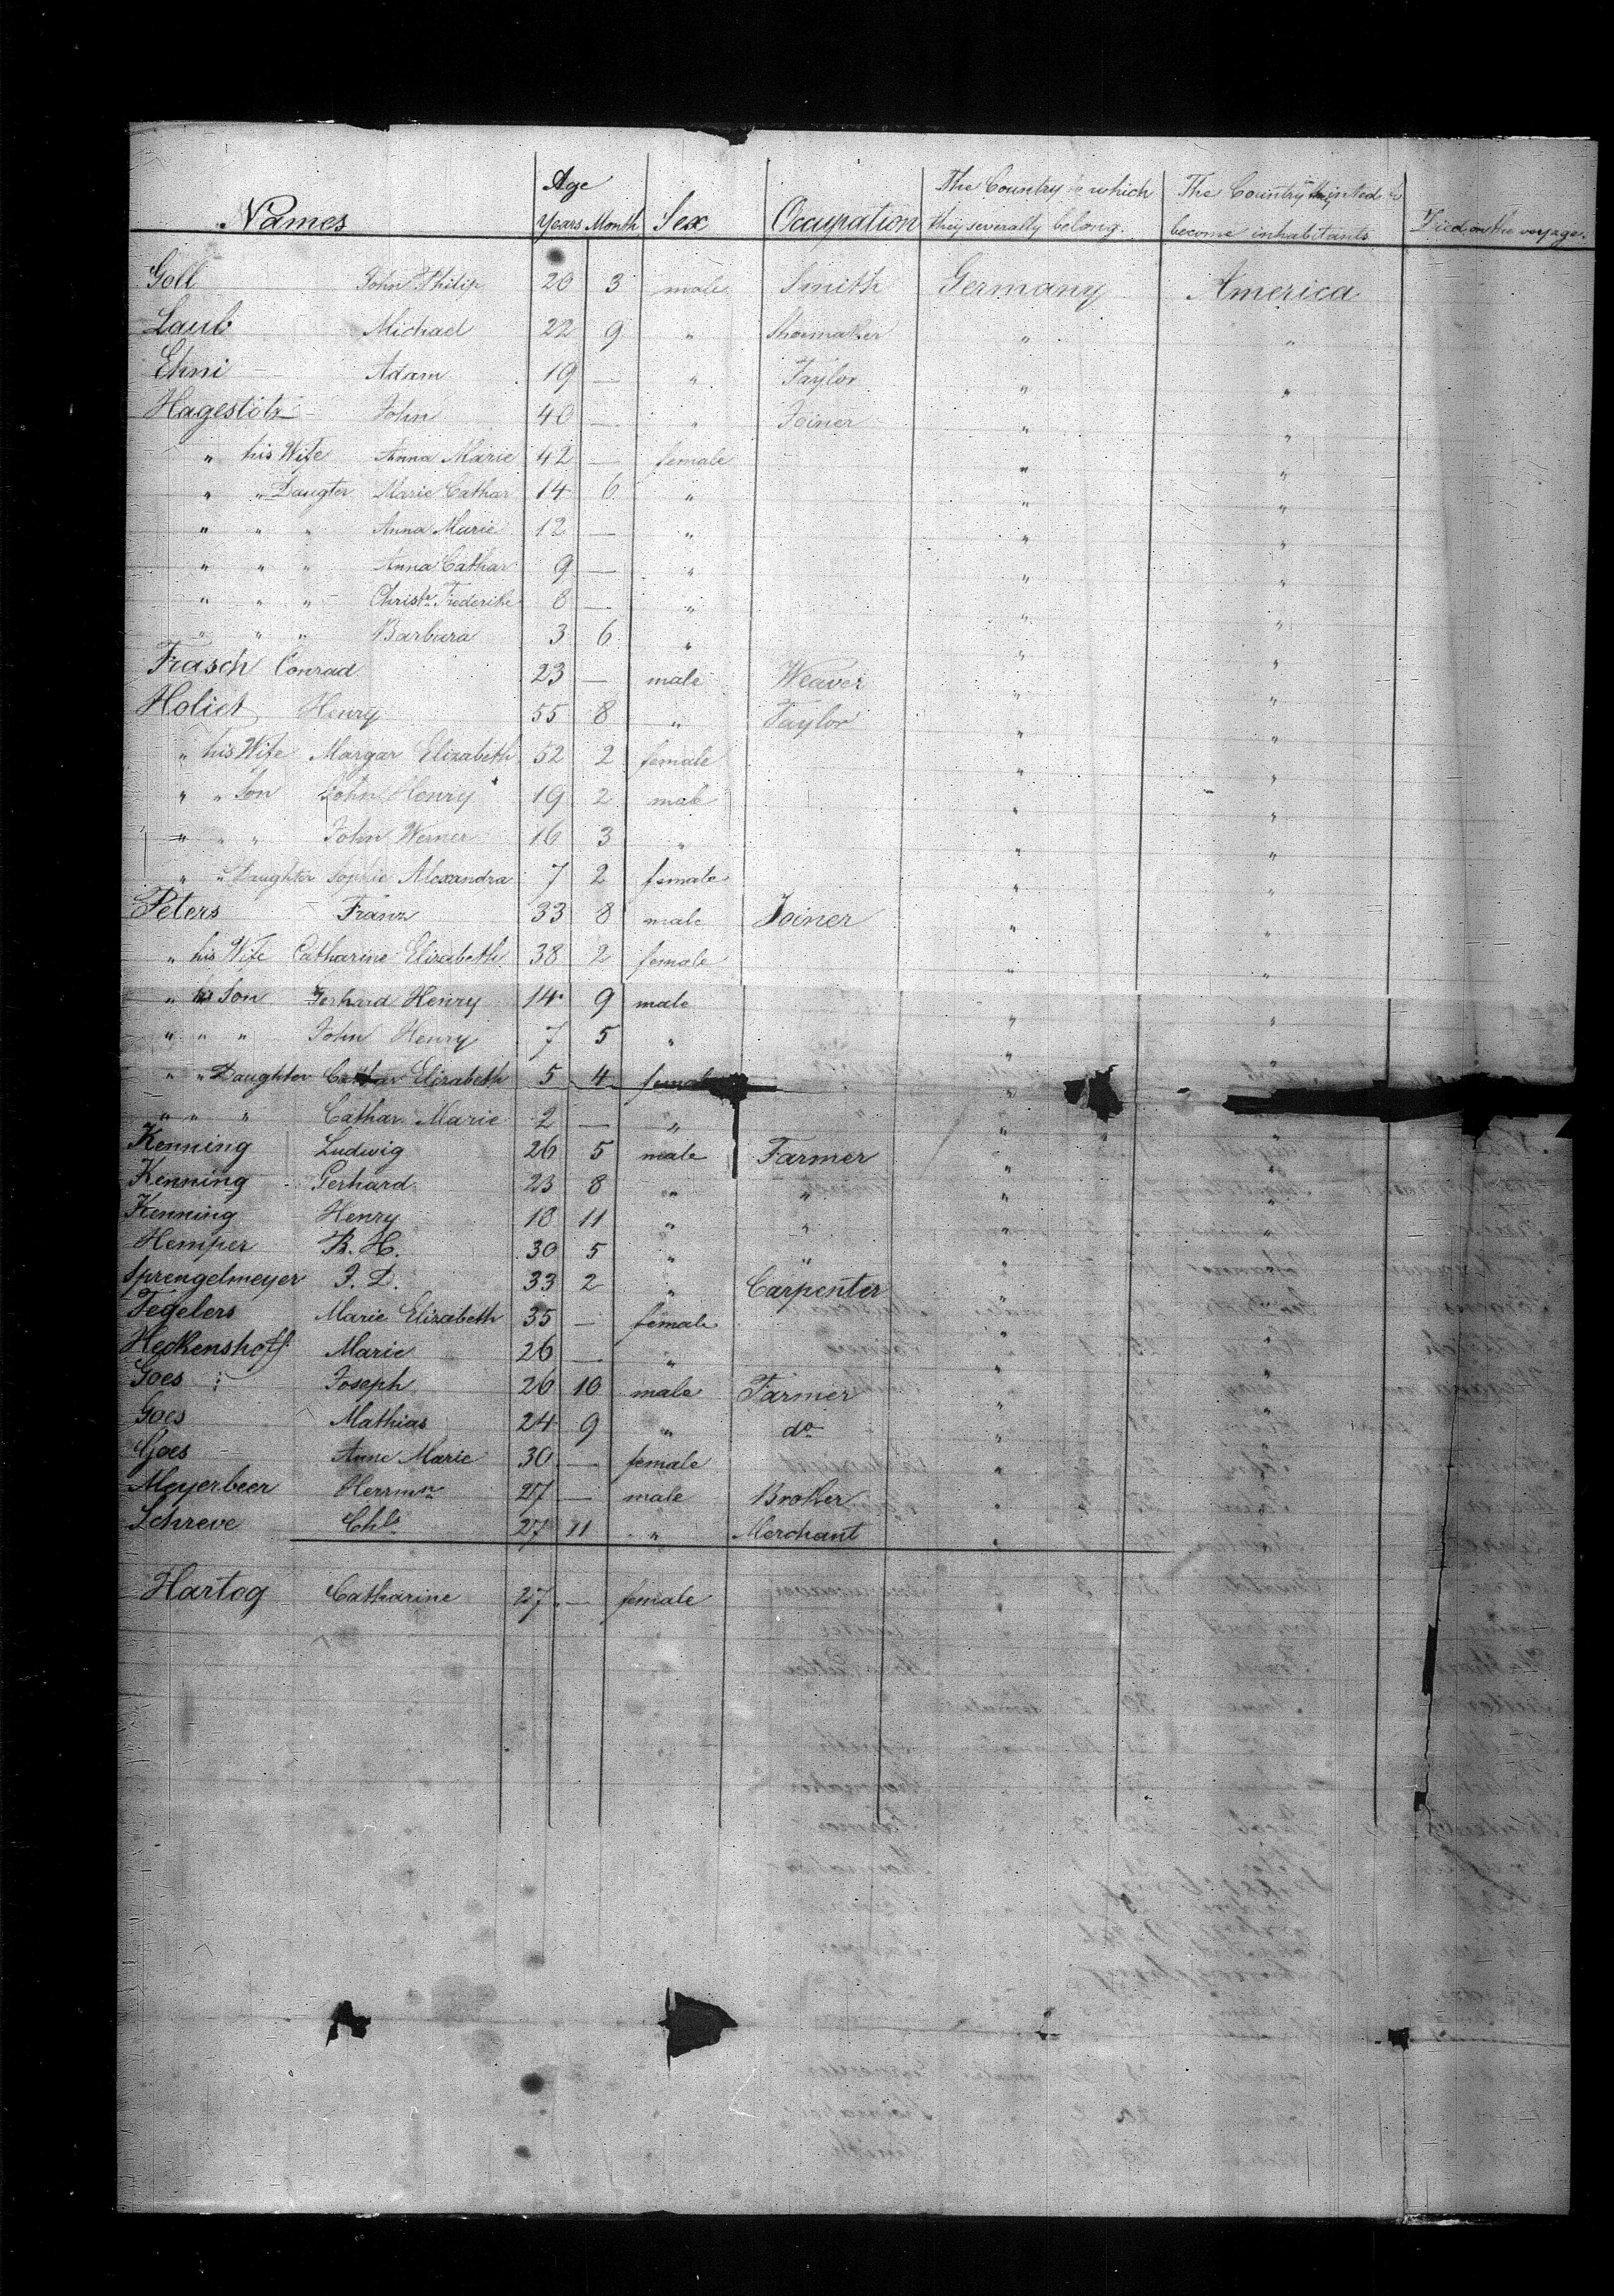 Names Age Years Month Sex Occupation The Country to which they severally belong. The Country they inted to become inhabitants Died on the voyage.
Goll John Philip 20 3 male Smith Germany America
Laub Michael 22 9 " Shoemaker " "
Ehni Adam 19 — " Taylor " "
Hagestolz John 40 — " Joiner " "
" his Wife Anna Marie 42 — female " "
" " Daugter Marie Cathar 14 6 " " "
" " " Anna Marie 12 — " " "
" " " Anna Cathar 9 — " " "
" " " Christ Frederike 8 — " " "
" " " Barbara 3 6 " " "
Frasch Conrad 23 — male Weaver " "
Holict Henry 55 8 " Taylor " "
" his Wife Margar Elizabeth 52 2 female " "
" " Son John Henry 19 2 male " "
" " " John Werner 16 3 " " "
" " Daughter Sophie Alexandra 7 2 female " "
Peters Franz 33 8 male Joiner " "
" his Wife Catharine Elizabeth 38 2 female " "
" his Son Gerhard Henry 14 9 male " "
" " " John Henry 7 5 " " "
" " Daughter Cathar Elizabeth 5 4 female "
" " " Cathar. Marie 2 — " " "
Kenning Ludwig 26 5 male Farmer " "
Kenning Gerhard 23 8 " " " "
Kenning Henry 18 11 " " " "
Hemper B. H. 30 5 " " " "
Sprengelmeyer J. D. 33 2 " Carpenter " "
Tegelers Marie Elizabeth 35 — female " "
Heckenshoff Marie 26 — " " "
Goes Joseph 26 10 male Farmer " "
Goes Mathias 24 9 " do "
Goes Anne Marie 30 — female "
Meyerbeer Herrmn 27 — male Broker "
Schreve Chls 27 11 " Merchant "
Hartog Catharine 27 — female